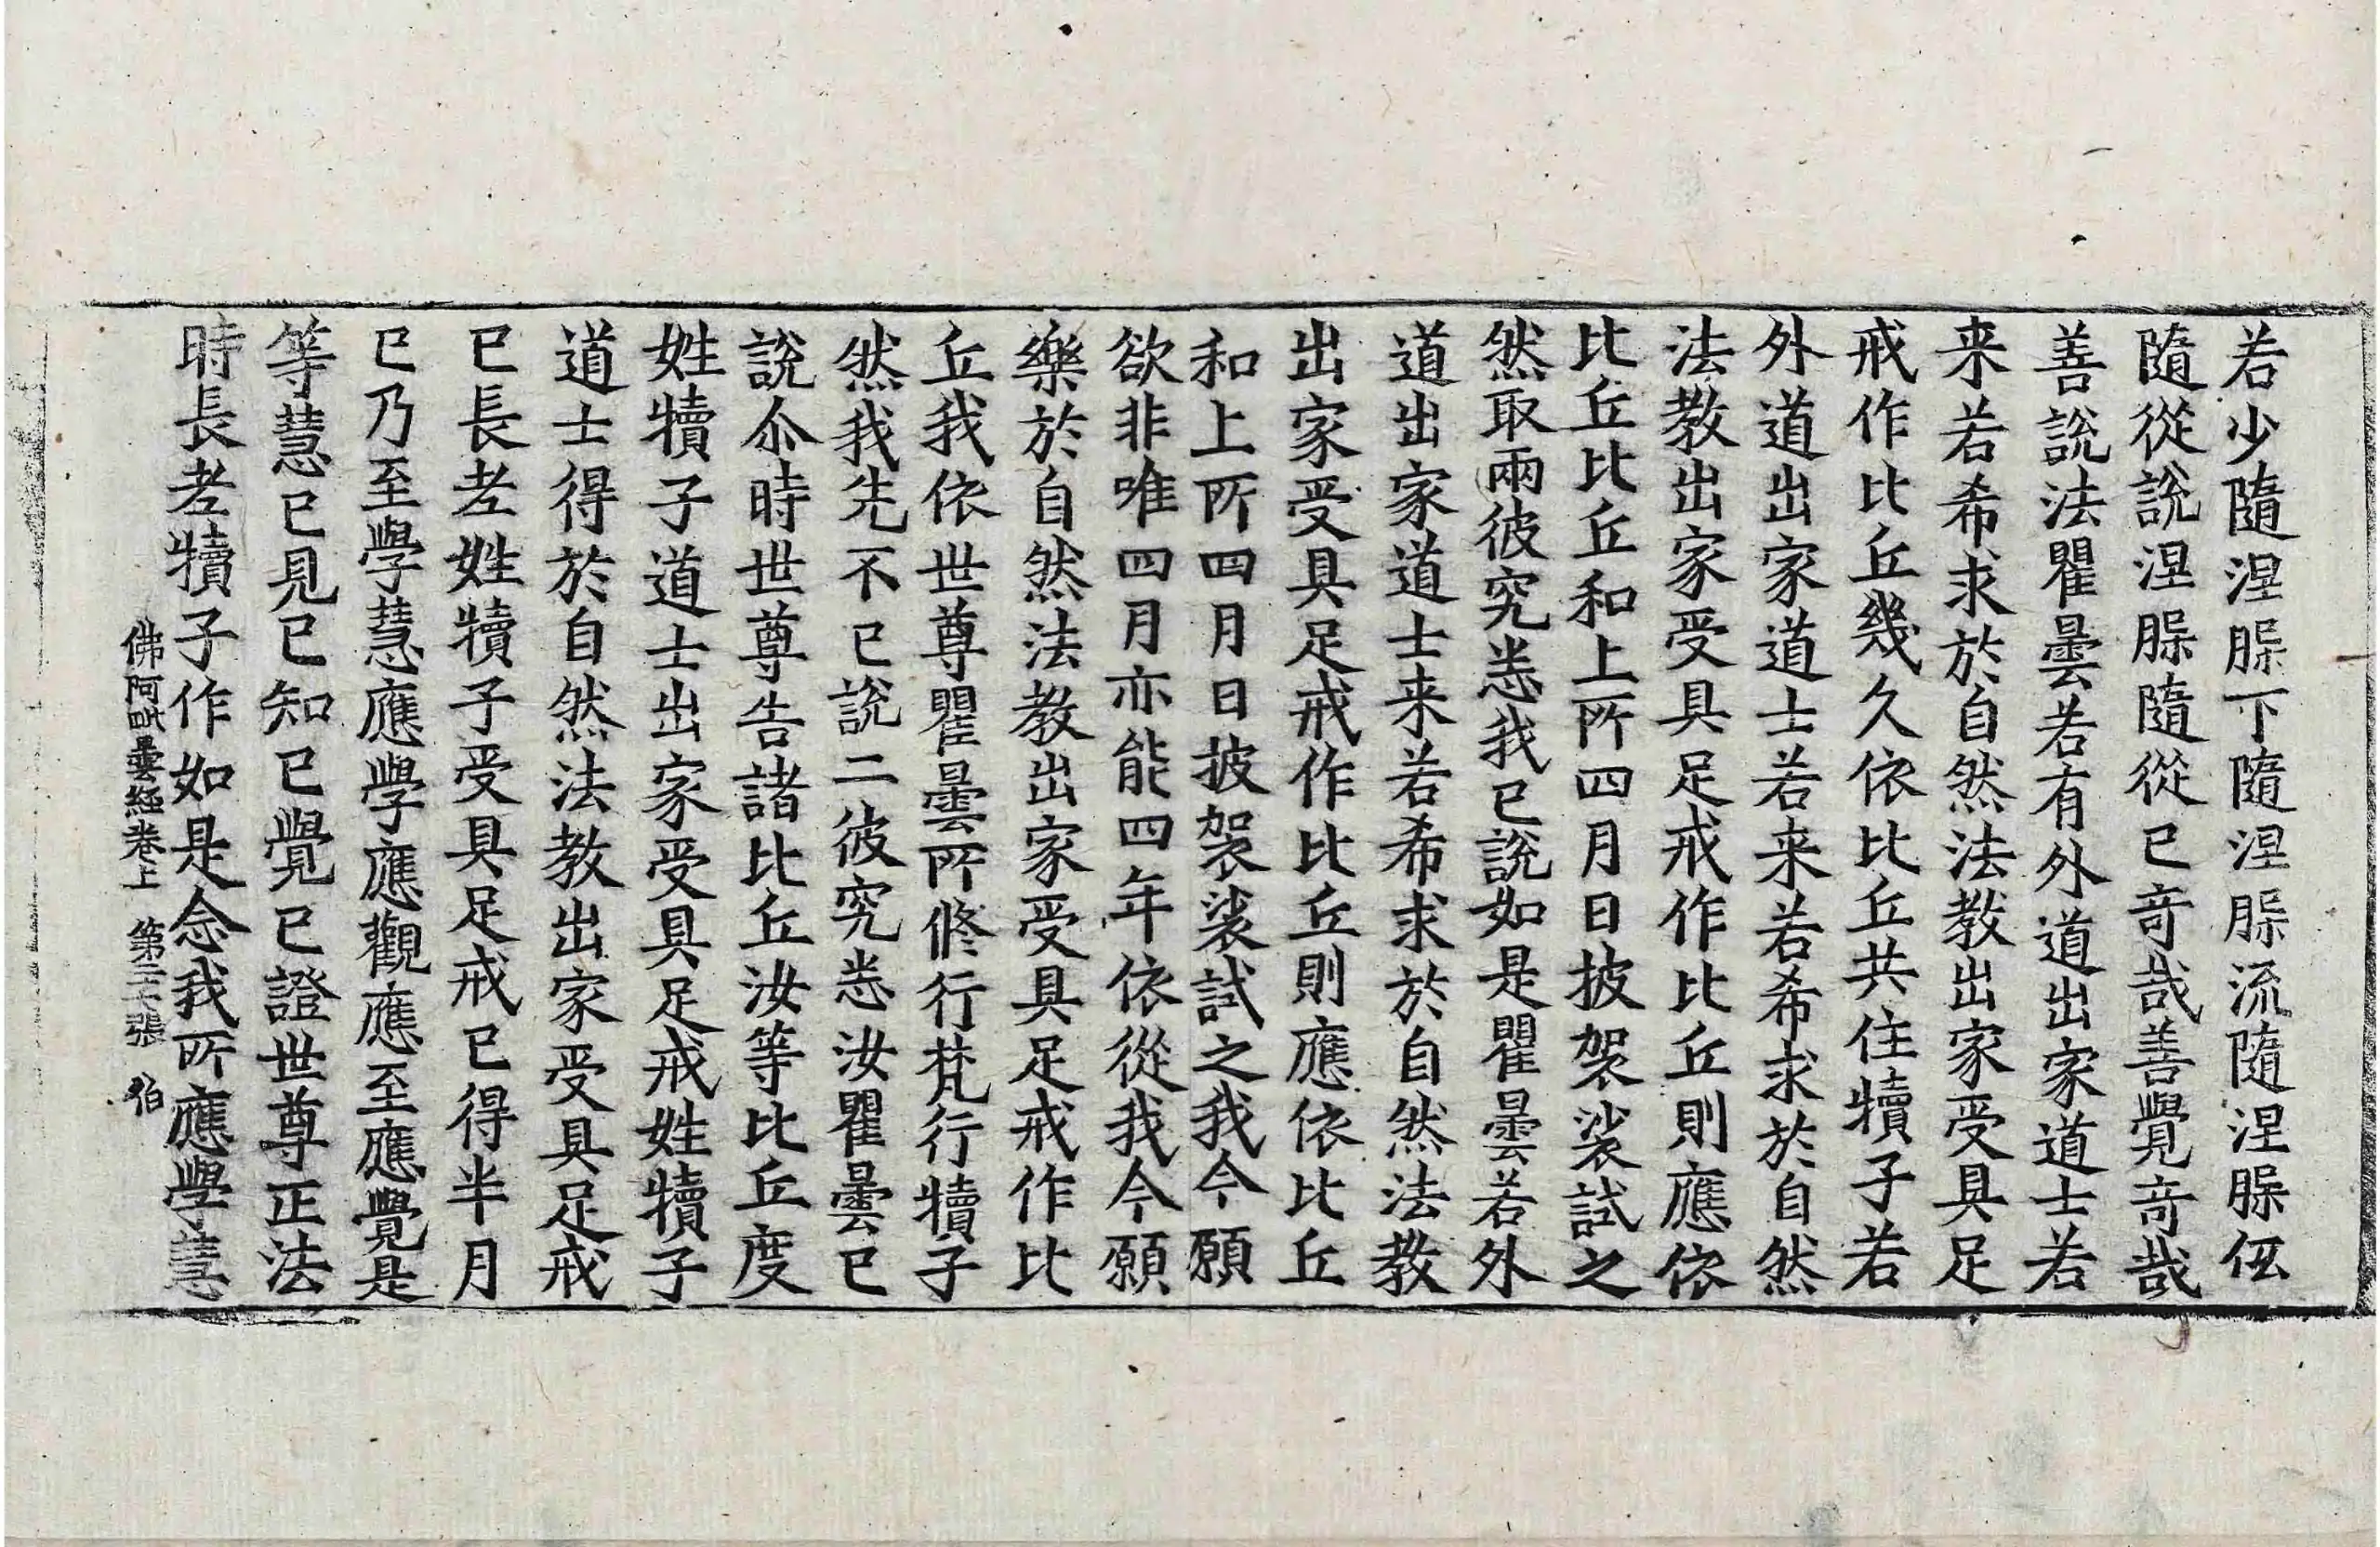 若少隨涅腺下隨涅腺流隨涅腺仾
隨從說涅腺隨從已竒哉善覺竒哉
善說法瞿曇若有外道出家道士若
来若希求於自然法教出家受具足
戒作比丘幾久依比丘共住犢子若
外道出家道士若来若希求於自然
法教出家受具足戒作比丘則應依
比丘比丘和上所四月日披袈裟試之
然取兩彼究恙我已說如是瞿曇若外
道出家道士来若希求於自然法教
出家受具足戒作比丘則應依比丘
和上所四月日披袈裟試之我今願
欲非唯四月亦能四年依從我今願
樂於自然法教出家受具足戒作比
丘我依世尊瞿曇所修行梵行犢子
然我先不已說二彼究恙汝瞿曇已
說尒時世尊告諸比丘汝等比丘度
姓犢子道士出家受具足戒姓犢子
道士得於自然法教出家受具足戒
已長老姓犢子受具足戒已得半月
已乃至學慧應學應觀應至應覺是
等慧已見已知已覺已證世尊正法
時長老犢子作如是念我所應學慧
佛阿毗曇經卷上 第二十張 伯